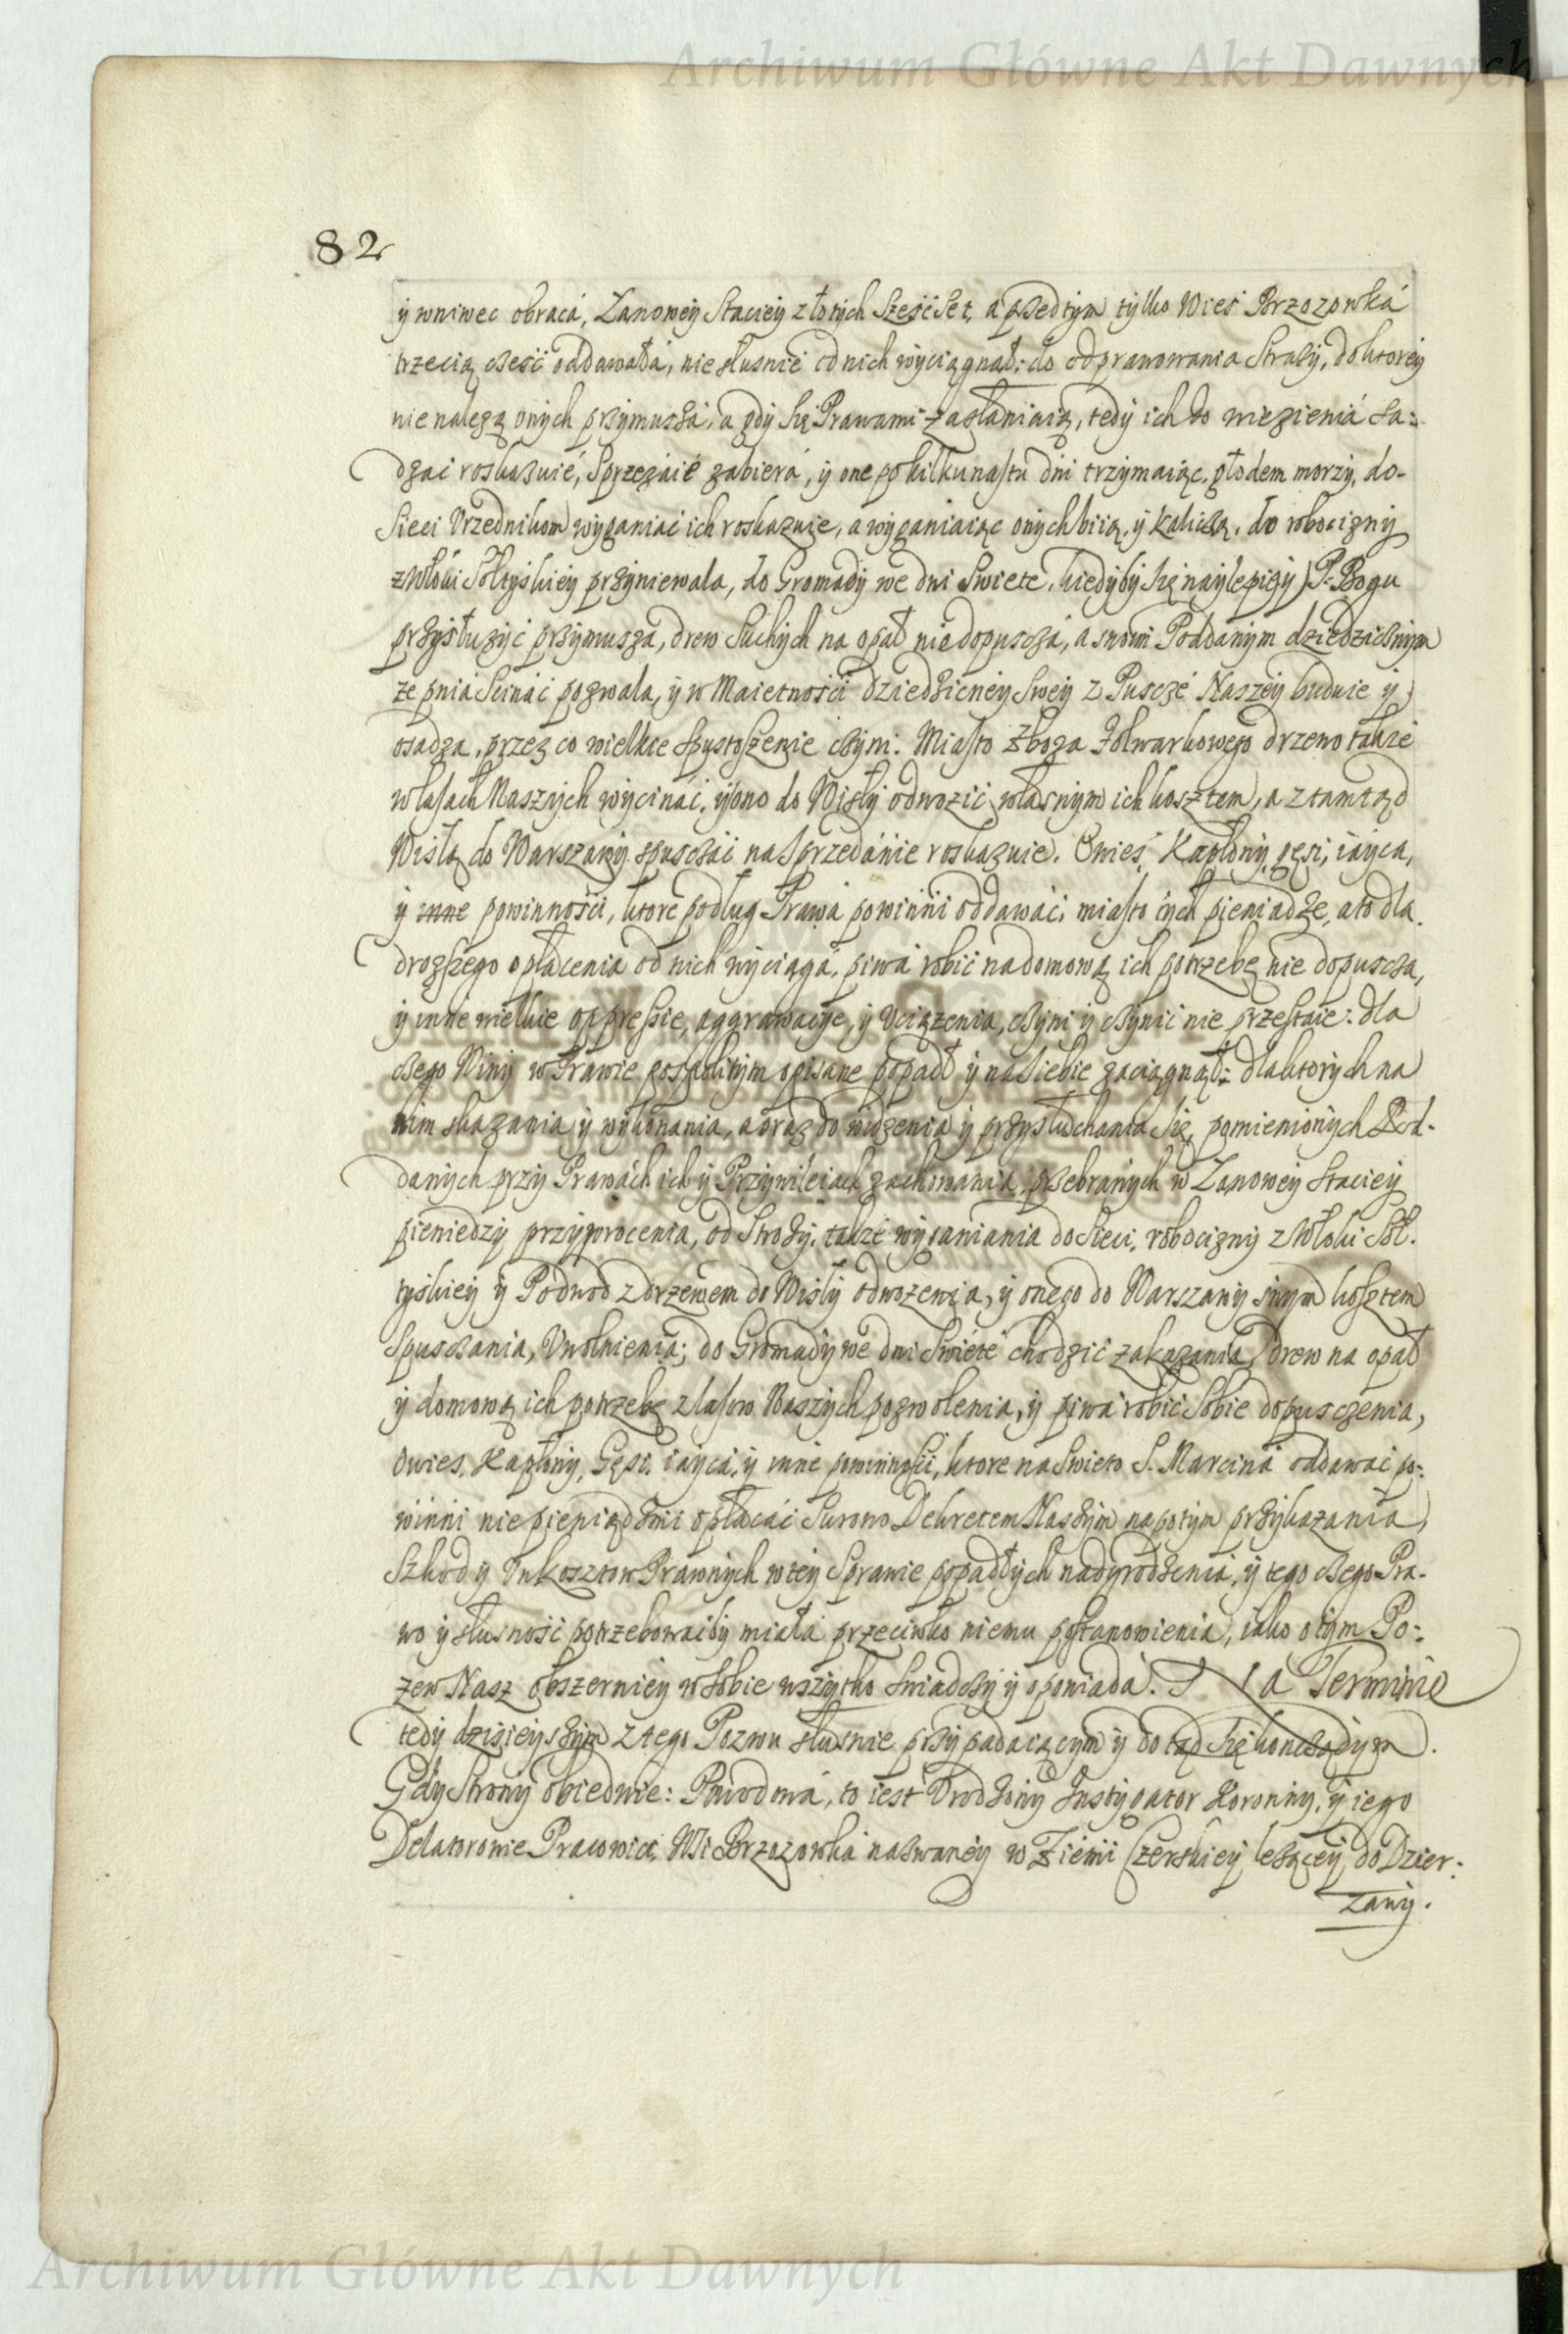 Archiwum Główne Akt Dawnych
82
y wniwec obraca, Łanowey Staciey złotych Sześć Set, a przedtym tylko Wieś Brzozowka
trzecią cześć oddawała, nie słusnie od nich wyciągnął: do odprawowania Straży, do ktorey
nie należą onych przymusza, a gdy się Prawami zasłaniaią, tedy ich do więzienia sa=
dzać roskazuie, Sprzęzaie zabiera, y one po kilkunastu dni trzymaiąc, głodem morzy, do-
Sieci Vrzednikom wyganiać ich roskazuie, a wyganiaiąc onych biią, y kaliczą, do robocizny
z Włoki Sołtyskiey przyniewala, do Gromady we dni Swiete, kiedyby się naylepiey P. Bogu
przysłużyć przymusza, drew Suchych na opał nie dopuscza, a swoim Poddanym dziedzicznym
ze pnia Scinać pozwala, y w Maietności dziedziczney Swey z Puscze Naszey buduie y
osadza, przez co wielkie Spustoszenie czyni: Miasto zboza Folwarkowego drzewo takze
w lasach Naszych wycinać, y ono do Wisły odwozić własnym ich kosztem, a ztamtąd
Wisłą do Warszawy spusczać na Sprzedanie roskazuie. Owies, Kapłony, gęsi, iayca,
y inne powinności, ktore podług Prawa powinni oddawać, miasto tych pieniądze, a to dla
drozszego opłacenia od nich wyciąga, piwa robić na domową ich potrzebę nie dopuscza,
y inne wielkie oppressie, aggrawacye, y Vciązenia, czyni y czynić nie przestaie: dla
czego Winy w Prawie pospolitym opisane popadł y na siebie zaciągnął: dla ktorych na
nim skazania y wykonania, a oraz do widzenia y przysłuchania się, pomienionych Pod-
danych przy Prawach ich y Przywileiach zachowania, przebranych w Łanowey Staciey
pieniedzy przywrocenia, od Strozy, takze wyganiania do Sieci, robocizny z Włoki Soł-
tyskiey y Podwod z drzewem do Wisły odwozenia, y onego do Warszawy swym kosztem
Spusczania, Vwolnienia; do Gromady we dni Swiete chodzić zakazania, drew na opał
y domową ich potrzebę z lasow Naszych pozwolenia, y piwa robić Sobie dopusczenia,
Owies, Kapłony, Gęsi, iayca, y inne powinności, ktore na Swieto S. Marcina oddawać po=
winni nie pieniądzmi opłacać Surowo Dekretem Naszym na potym przykazania,
Szkod y Vnkosztow Prawnych w tey Sprawie popadłych nadgrodzenia, y tego czego Pra-
wo y słusność potrzebowaćby miała przeciwko niemu postanowienia, iako o tym Po=
zew Nasz obszerniey w sobie wszytko swiadczy y opowiada. Na Terminie
tedy dzisieyszym z tego Pozwu słusnie przypadaiącym y dotąd się konczącym.
Gdy Strony obiedwie: Powodowa, to iest Vrodzony Instygator Koronny, y iego
Delatorowie Pracowici, Wsi Brzozowka nazwaney w Ziemi Czerskiey lezącey, do Dzier=
zawy.
Archiwum Główne Akt Dawnych